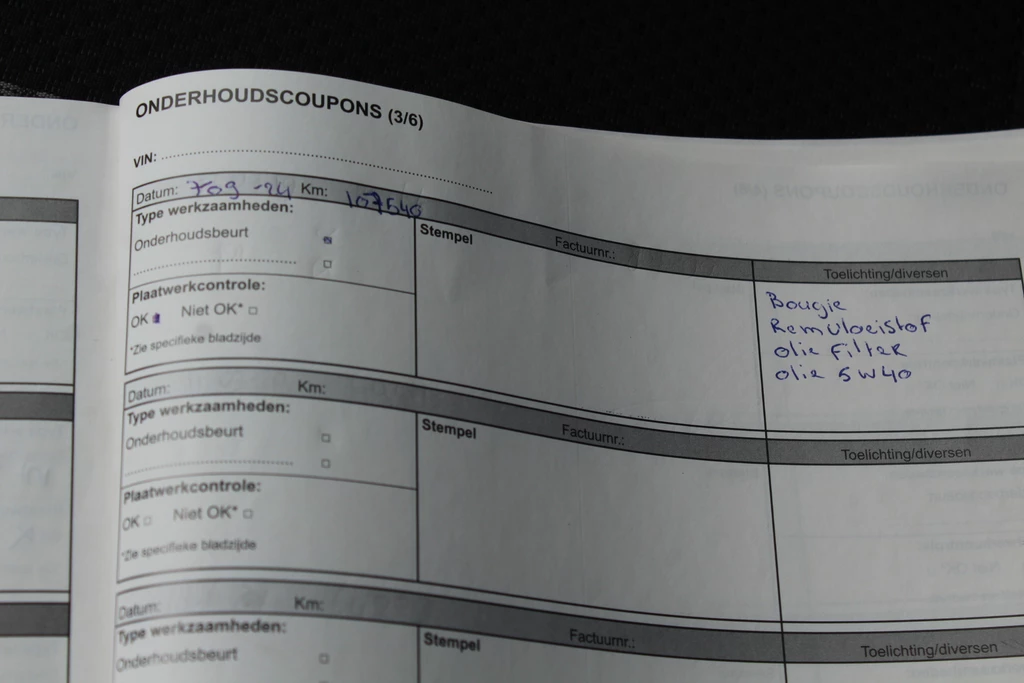 ONDERHOUDSCOUPONS (3/6)
VIN:
Datum: Km: 107540
Type werkzaamheden:
Onderhoudsbeurt
Plaatwerkcontrole:
OK Niet OK*
*Zie specifieke bladzijde
Stempel
Factuurnr.:
Toelichting/diversen
Bougie
Remvloeistof
olie Filter
olie 5W40
Datum: Km:
Type werkzaamheden:
Onderhoudsbeurt
Plaatwerkcontrole:
OK Niet OK*
*Zie specifieke bladzijde
Stempel
Factuurnr.:
Toelichting/diversen
Datum: Km:
Type werkzaamheden:
Onderhoudsbeurt
Stempel
Factuurnr.:
Toelichting/diversen